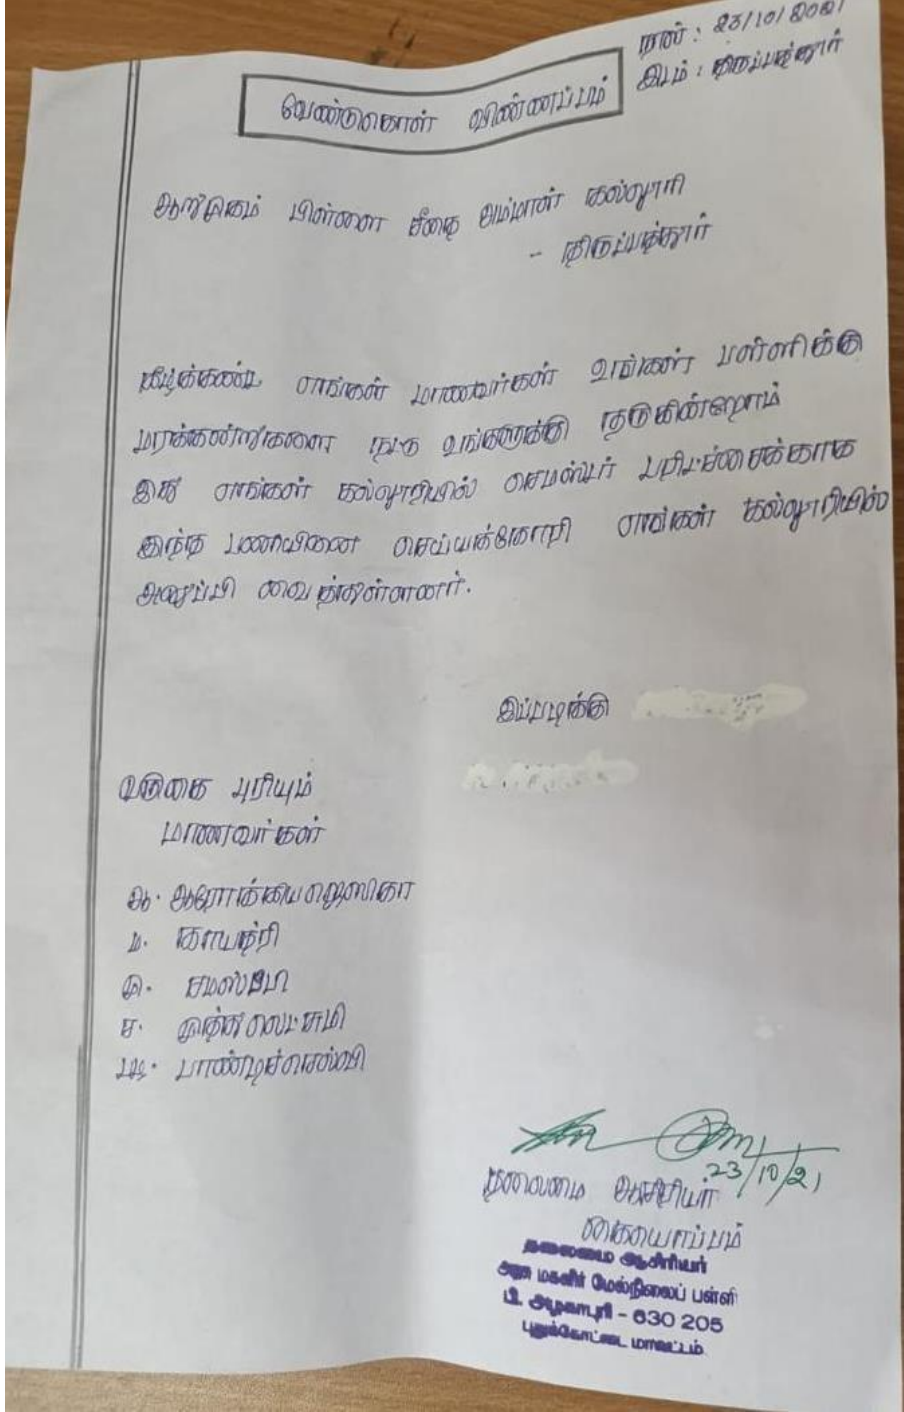 நாள் : 23/10/2021
இடம் : திருப்பத்தூர்
வேண்டுகோள் விண்ணப்பம்
ஆறுமுகம் பிள்ளை சீதை அம்மாள் கல்லூரி
- திருப்பத்தூர்
கீழ்க்கண்ட எங்கள் மாணவர்கள் உங்கள் பள்ளிக்கு
மரக்கன்றுகளை நட்டு உங்களுக்கு தருகின்றோம்
இது எங்கள் கல்லூரியில் செமஸ்டர் பரிட்சைக்காக
இந்த பணியினை செய்யக்கோரி எங்கள் கல்லூரியில்
அனுப்பி வைத்துள்ளனர்.
இப்படிக்கு
வருகை புரியும்
மாணவர்கள்
ஆ. ஆரோக்கிய ஜெஸிகா
ம. காயத்ரி
மு. சமஸ்பா
ச. முத்து லெட்சுமி
பா. பாண்டிச்செல்வி
23/10/21
தலைமை ஆசிரியர்
கையொப்பம்
தலைமை ஆசிரியர்
அரசு மகளிர் மேல்நிலைப் பள்ளி
பி. அழகாபுரி - 630 205
புதுக்கோட்டை மாவட்டம்.